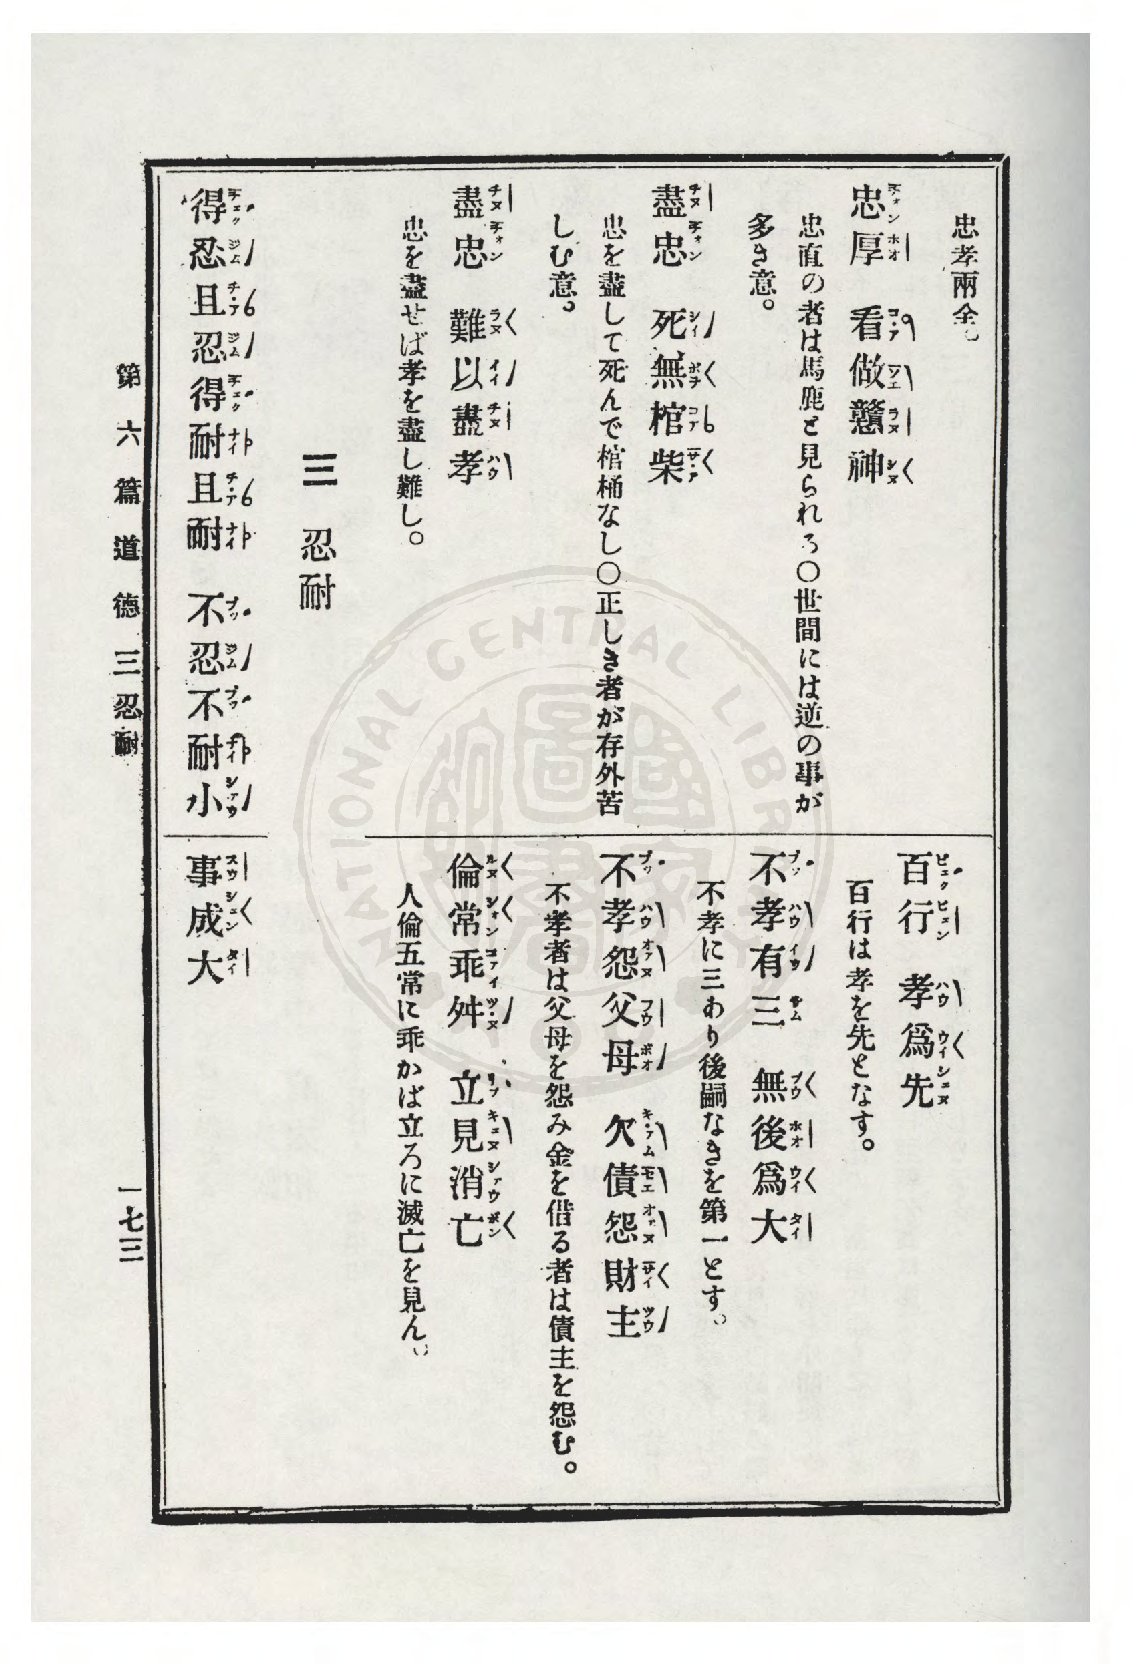 忠孝兩全。
忠厚　看做戇神
忠直の者は馬鹿と見られる〇世間には逆の事が
多き意。
盡忠　死無棺柴
忠を盡して死んで棺桶なし〇正しき者が存外苦
しむ意。
盡忠　難以盡孝
忠を盡せば孝を盡し難し。
百行　孝爲先
百行は孝を先となす。
不孝有三　無後爲大
不孝に三あり後嗣なきを第一とす。
不孝怨父母　欠債怨財主
不孝者は父母を怨み金を借る者は債主を怨む。
倫常乖舛　立見消亡
人倫五常に乖かば立ろに滅亡を見ん。
三　忍耐
得忍且忍得耐且耐　不忍不耐小
事成大
第六篇　道德　三　忍耐
一七三
NATIONAL CENTRAL LIBRARY
國家圖書館